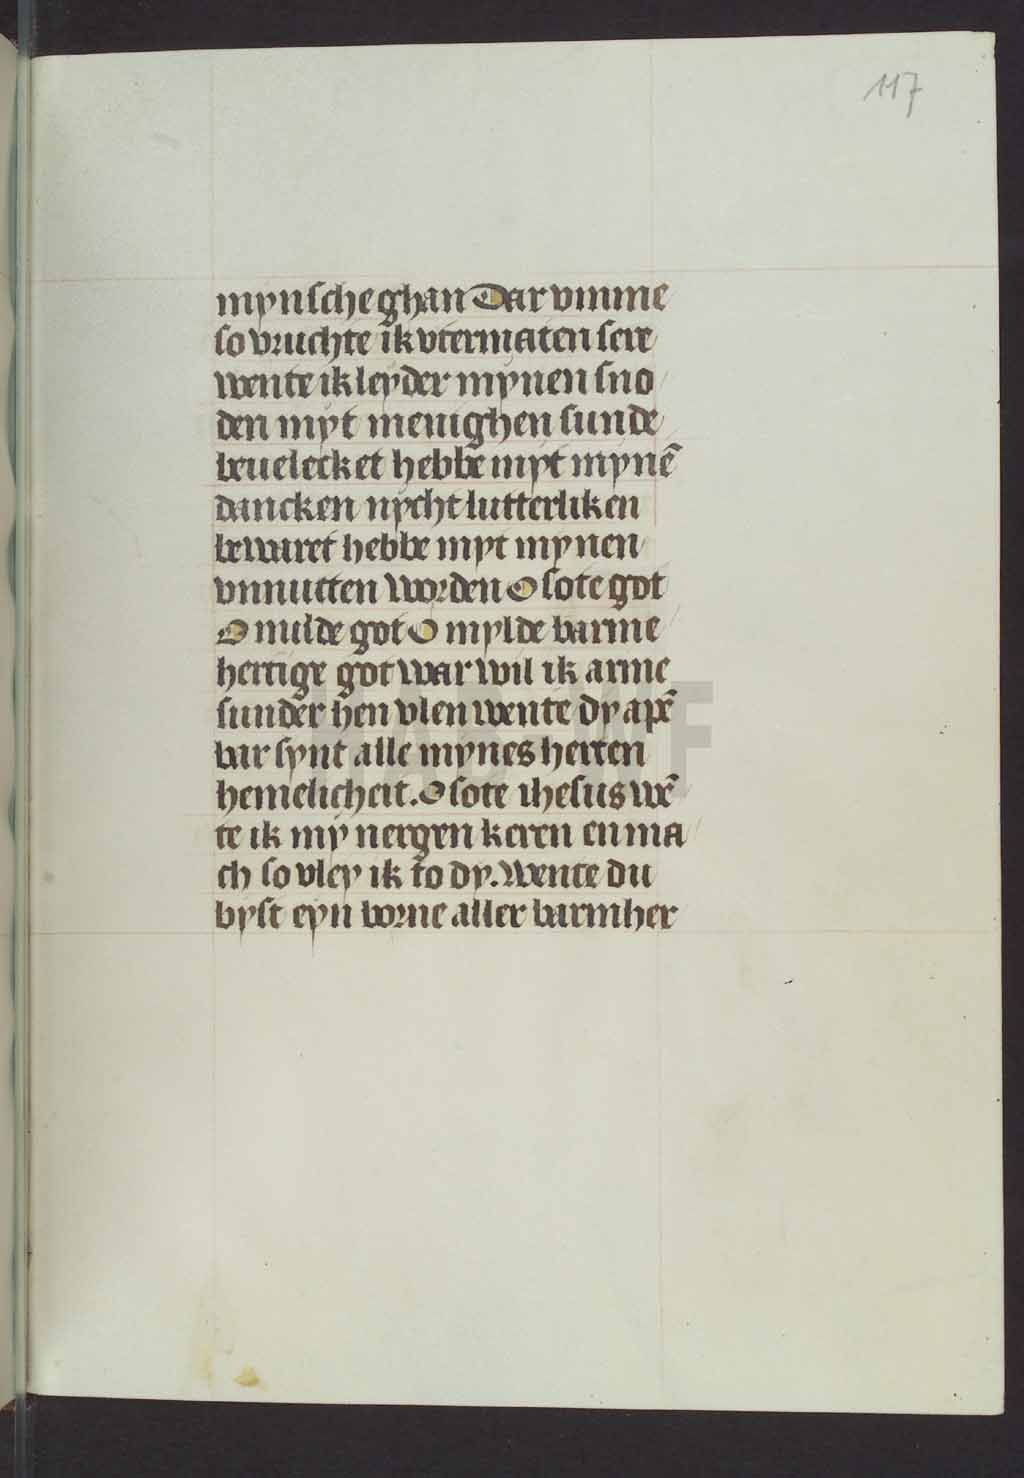 117
mynsche ghan Dar vmme
so vruchte ik vtermaten sere
wente ik leyder mynen sno
den myt menighen sunde
beuelecket hebbe myt mynē
dancken nycht lutterliken
bewaret hebbe myt mynen
vnnutten worden O sote got
O milde got O mylde barme
hertige got war wil ik arme
sunder hen vlen wente dy apē
bar synt alle mynes herten
hemelicheit. O sote ihesus wē
te ik my nergen keren en ma
ch so vley ik to dy. wente du
byst eyn borne aller barmher
HAB WF